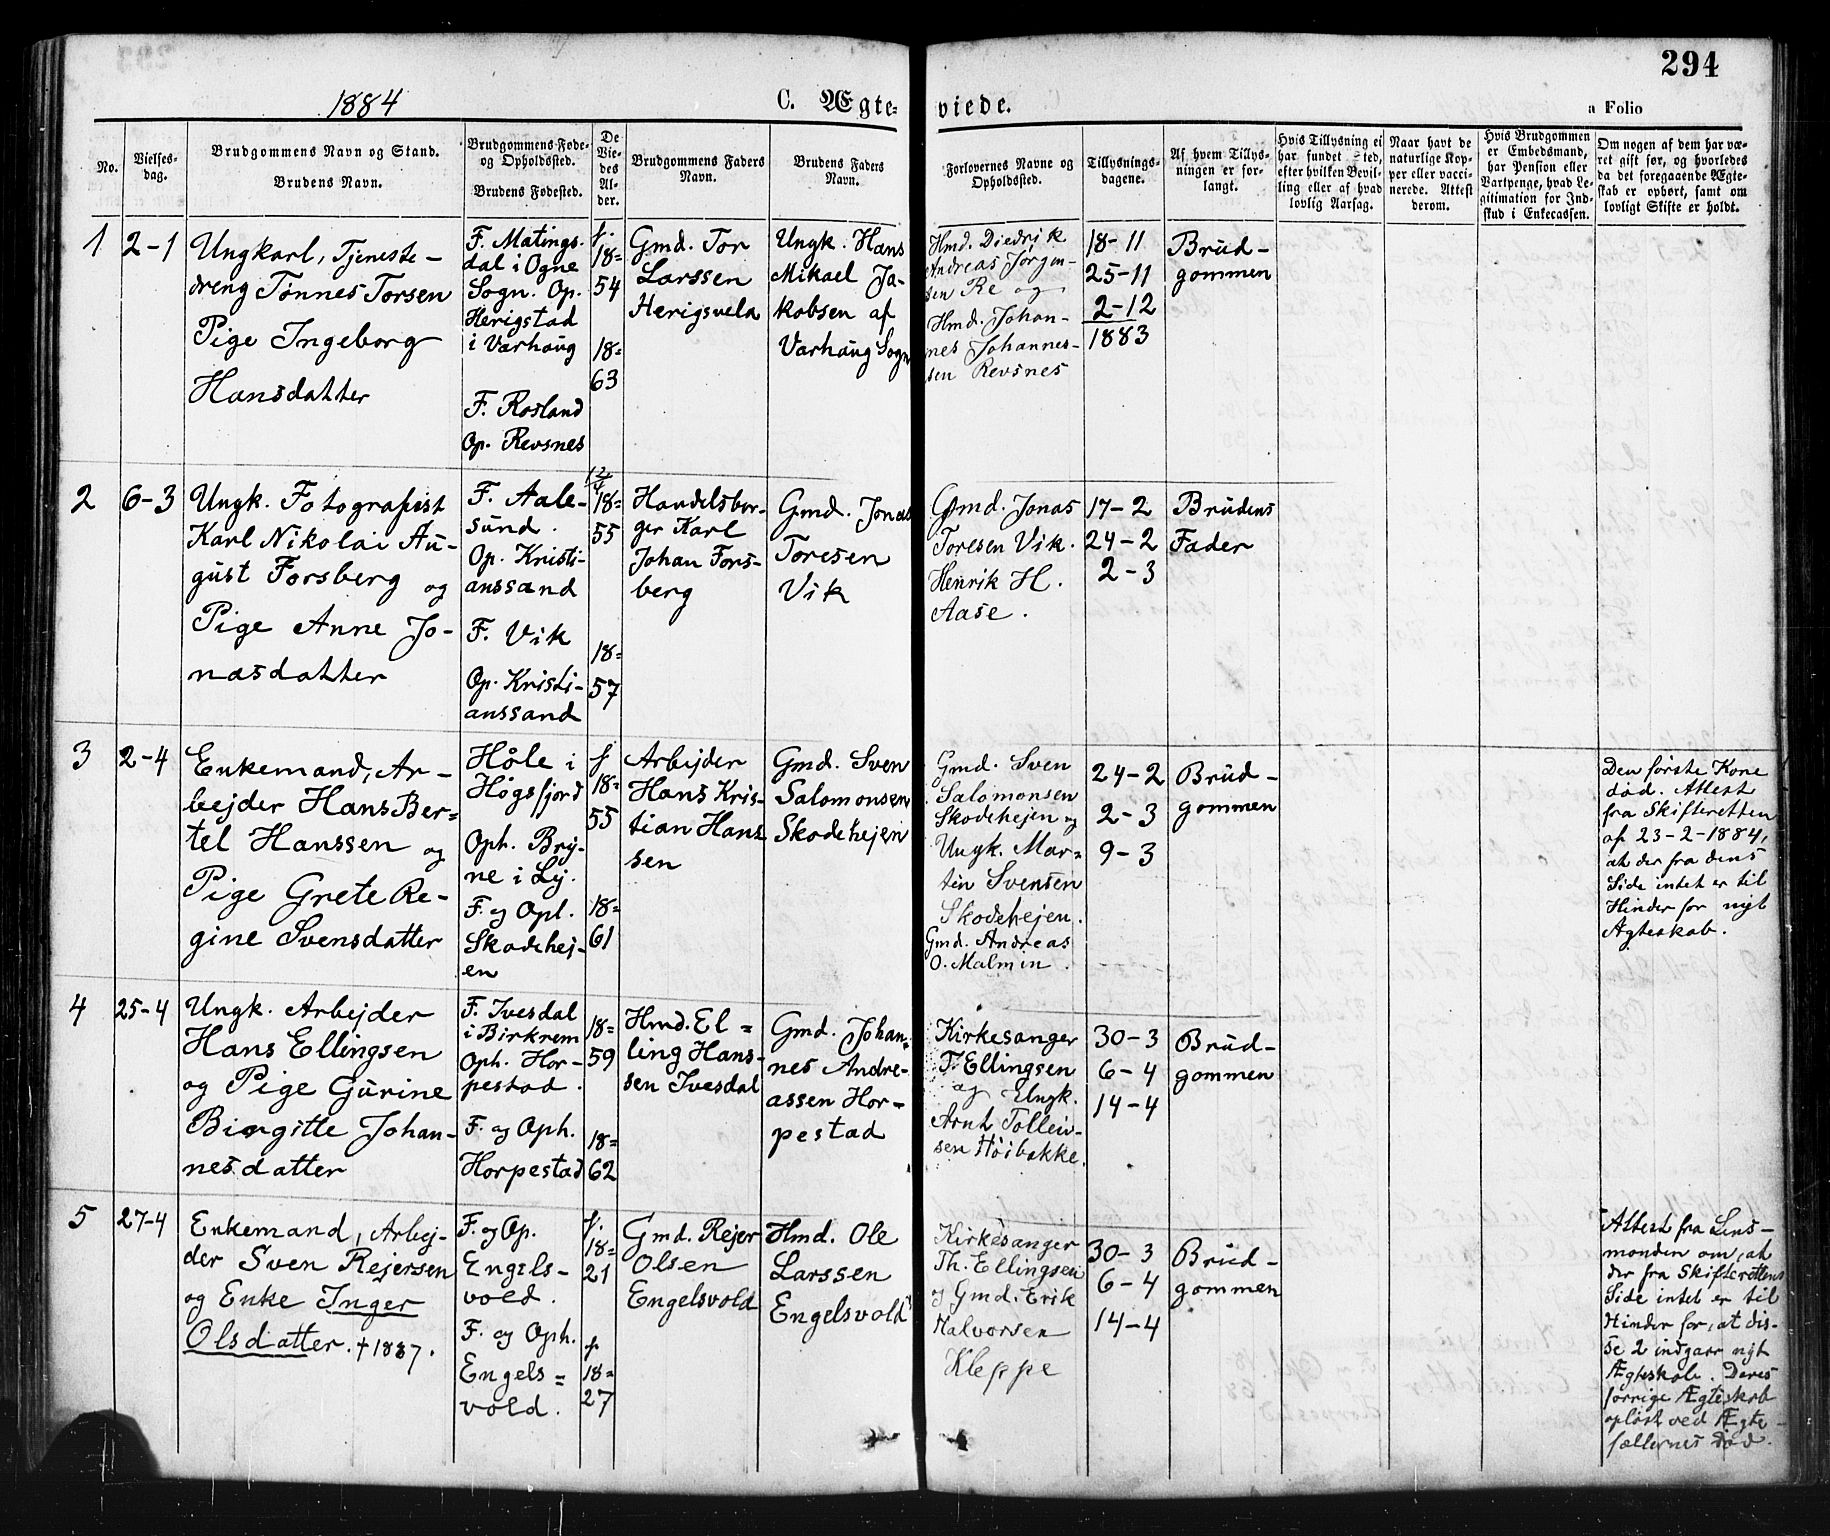 294
1884
C. Ægte-
viede.
a Folio
No.
Vielses-
dag.
Brudgommens Navn og Stand.
Brudens Navn.
Brudgommens Føde-
og Opholdssted.
Brudens Fødested.
De
Vie-
des
Al-
der.
Brudgommens Faders
Navn.
Brudens Faders
Navn.
Forlovernes Navne og
Opholdssted.
Tillysnings-
dagene.
Af hvem Tillys-
ningen er for-
langt.
Hvis Tillysning ei
har fundet Sted,
efter hvilken Bevil-
ling eller af hvad
lovlig Aarsag.
Naar havt de
naturlige Kop-
per eller vacci-
nerede. Attest
derom.
Hvis Brudgommen
er Embedsmand,
har Pension eller
Vartpenge, hvad Le-
gitimation for Ind-
skud i Enkecassen.
Om nogen af dem har væ-
ret gift før, og hvorledes
da det foregaaende Ægte-
skab er ophørt, samt om
lovligt Skifte er holdt.
1
2-1
Ungkarl, Tjeneste-
dreng Tønnes Torsen
Pige Ingeborg
Hansdatter
F. Matings-
dal i Ogne
Sogn. Op.
Herigstad
i Varhaug
F. Rosland
Op. Revsnes
f.
18=
54
18=
63
Gmd. Tor
Larssen
Herigsvela
Ungk. Hans
Mikael Ja-
kobsen af
Varhaug Sogn
Hmd. Diedrik
Andreas Jørgen-
sen Re og
Hmd. Johan-
nes Johannes-
sen Revsnes
18-11
25-11
2-12
1883
Brud-
gommen
2
6-3
Ungk. Fotografist
Karl Nikolai Au-
gust Forsberg og
Pige Anne Jo-
nasdatter
F. Aale-
sund.
Op. Kristi-
anssand
F. Vik
Op. Kristi-
anssand
12/4
18=
55
18=
57
Handelsbor-
ger Karl
Johan Fors-
berg
Gmd. Jonas
Toresen
Vik
Gmd. Jonas
Toresen Vik.
Henrik H.
Aase.
17-2
24-2
2-3
Brudens
Fader
3
2-4
Enkemand, Ar-
bejder Hans Ber=
tel Hanssen og
Pige Grete Re-
gine Svensdatter
Høle i
Høgsfjord
Oph. Bry-
ne i Ly.
F. og Opl.
Skodehej-
en
f
18=
55
18=
61
Arbejder
Hans Kris-
tian Hans-
sen
Gmd. Sven
Salomonsen
Skodehejen
Gmd. Sven
Salomonsen
Skodehejen og
Ungk. Mar=
tin Svensen
Skodehejen.
Gmd. Andreas
O. Malmin.
24-2
2-3
9-3
Brud-
gommen
Den første Kone
død. Attest
fra Skifteretten
af 23-2-1884,
at der fra dens
Side intet er til
Hinder for nyt
Ægteskab.
4
25-4
Ungk. Arbejder
Hans Ellingsen
og Pige Gurine
Birgitte Johan-
nesdatter
F. Ivesdal
i Birkrem
Oph. Hor-
pestad.
F. og Oph.
Horpestad
18=
59
18=
62
Hmd. El=
ling Hans-
sen Ivesdal
Gmd. Johan-
nes Andre-
assen Hor-
pestad
Kirkesanger
T. Ellingsen
og Ungk.
Arnt Tolleiv-
sen Høibakke.
30-3
6-4
14-4
Brud-
gommen
5
27-4
Enkemand, Arbej-
der Sven Rejersen
og Enke Inger
Olsdatter. † 1887.
F. og Op.
Engels-
vold.
F. og Oph.
Engels=
vold.
f.
18=
21
f
18=
27
Gmd. Rejer
Olsen
Engelsvold
Hmd. Ole
Larssen
Engelsvold
Kirkesanger
Th. Ellingsen
og Gmd. Erik
Halvorsen
Kleppe
30-3
6-4
14-4
Brud-
gommen
Attest fra Lens-
manden om, at
der fra Skifterettens
Side intet er til
Hinder for, at dis-
se 2 indgaar nyt
Ægteskab. Deres
forrige Ægteskab
opløst ved Ægte-
fællernes Død.